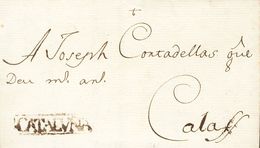 A Joseph Contadellas que
Deu m.s an.s
CATALUÑA
Calaff